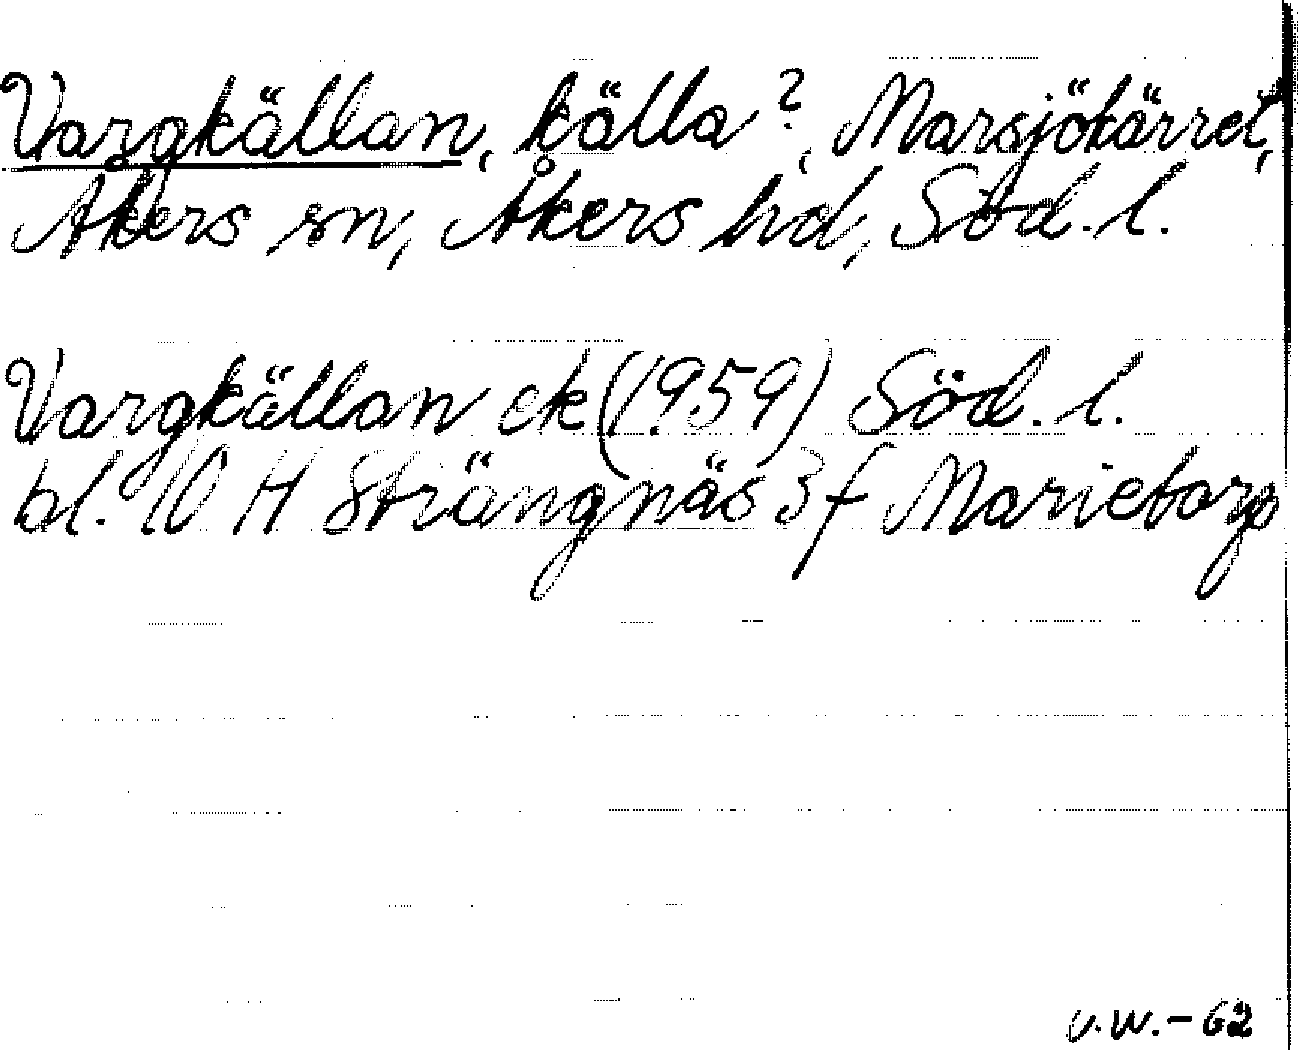 Vargkällan, källa?, Marsjökärret,
Åkers sn, Åkers hd, Söd. l.
Vargkällan ek (1959) Söd. l.
bl. 10 H Strängnäs 3 f Marietorp
v.w.-62